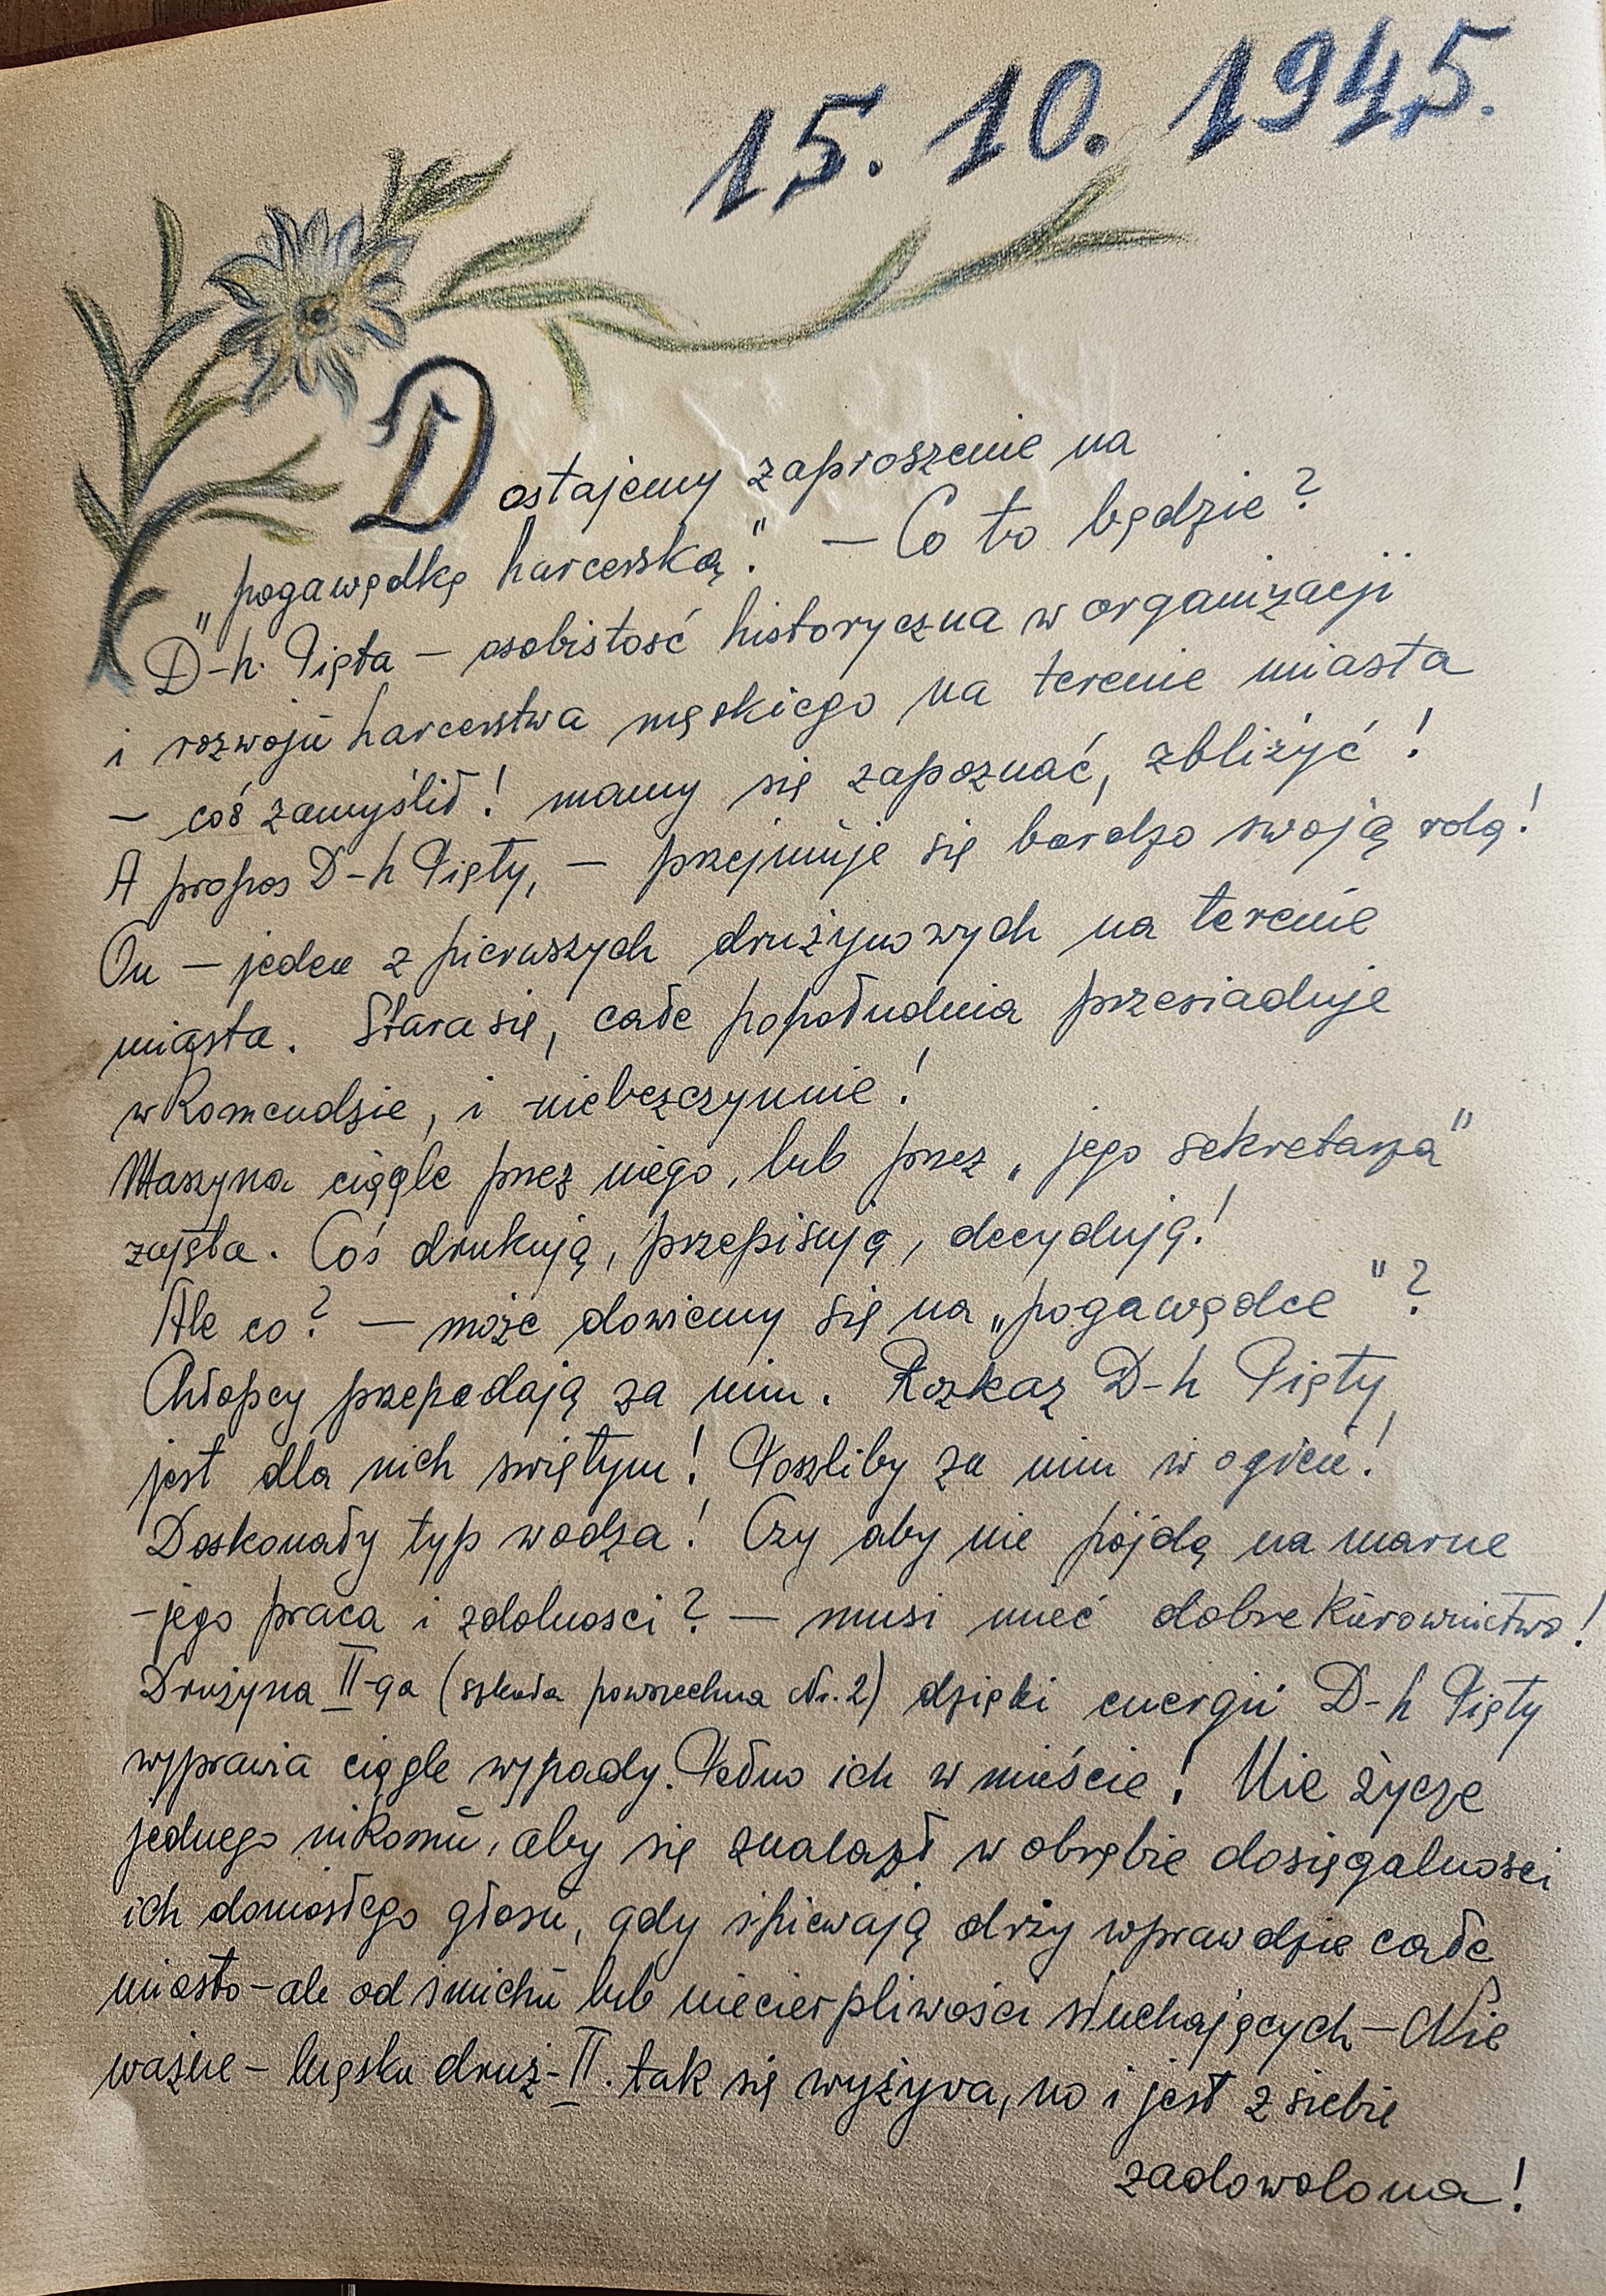 15. 10. 1945.
Dostajemy zaproszenie na
„pogawędkę harcerską." – Co to będzie?
D-h. Pięta – osobistość historyczna w organizacji
i rozwoju harcerstwa męskiego na terenie miasta
– coś zamyślił! mamy się zapoznać, zbliżyć!
A propos D-h Pięty, – przejmuje się bardzo swoją rolą!
On – jeden z pierwszych drużynowych na terenie
miasta. Stara się, całe popołudnia przesiaduje
w Komendzie, i niebezczynnie!
Maszyna ciągle przez niego, lub przez „jego sekretarza"
zajęta. Coś drukują, przepisują, decydują!
Ale co? – może dowiemy się na „pogawędce"?
Chłopcy przepadają za nim. Rozkaz D-h Pięty,
jest dla nich świętym! Poszliby za nim w ogień!
Doskonały typ wodza! Czy aby nie pójdą na marne
– jego praca i zdolności? – musi mieć dobre kierownictwo!
Drużyna II-ga (szkoła powszechna Nr. 2) dzięki energii D-h Pięty
wyprawia ciągle wypady. Pełno ich w mieście! Nie życzę
jednego nikomu, aby się znalazł w obrębie dosięgalności
ich doniosłego głosu, gdy śpiewają drży wprawdzie całe
miasto – ale od śmichu lub niecierpliwości słuchających – Nie
ważne – męska druż – II. tak się wyżywa, no i jest z siebie
zadowolona!